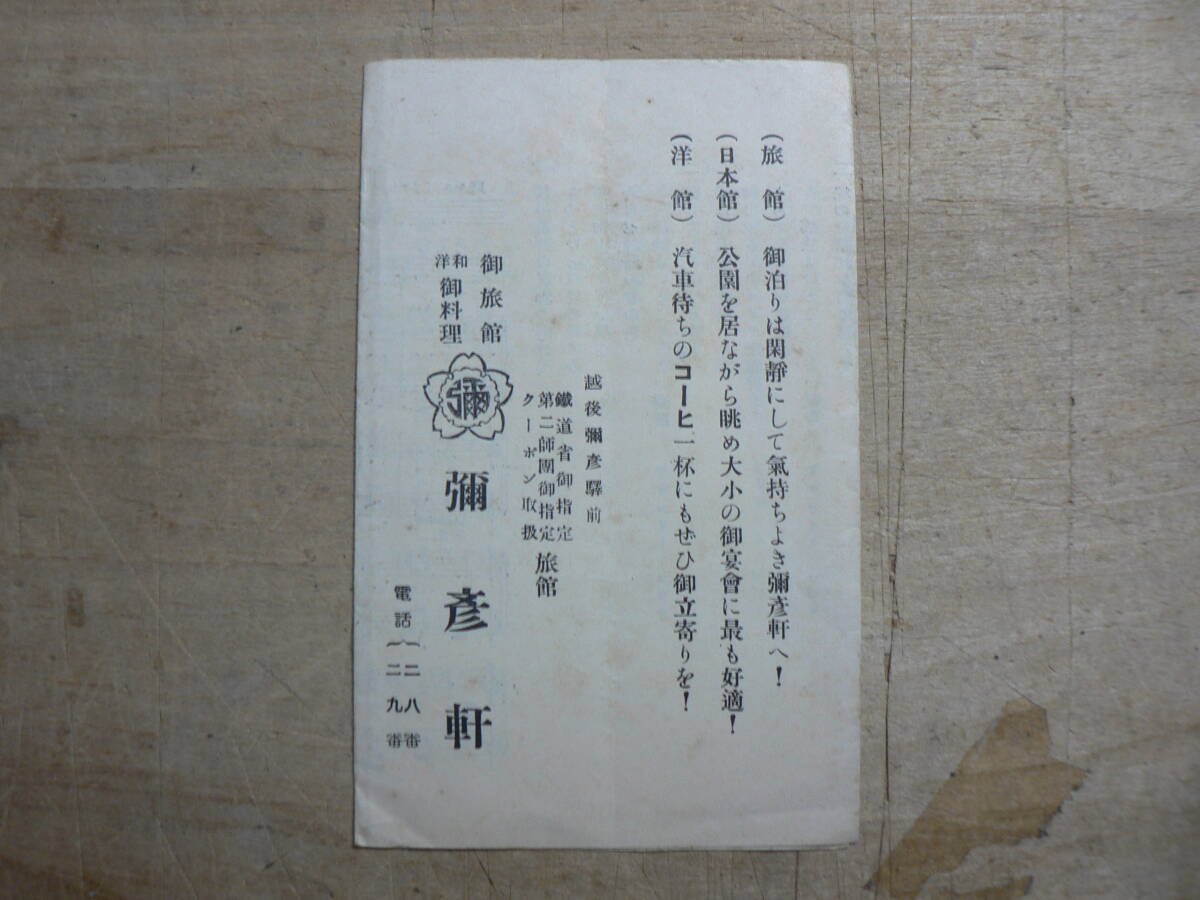 (旅館) 御泊りは閑靜にして氣持ちよき彌彦軒へ!
(日本館) 公園を居ながら眺め大小の御宴會に最も好適!
(洋館) 汽車待ちのコーヒ一杯にもぜひ御立寄りを!
越後彌彦驛前
鐵道省御指定
第二師團御指定
クーポン取扱
旅館
御旅館
和洋御料理
彌
彌彦軒
電話(二八番
(二九番